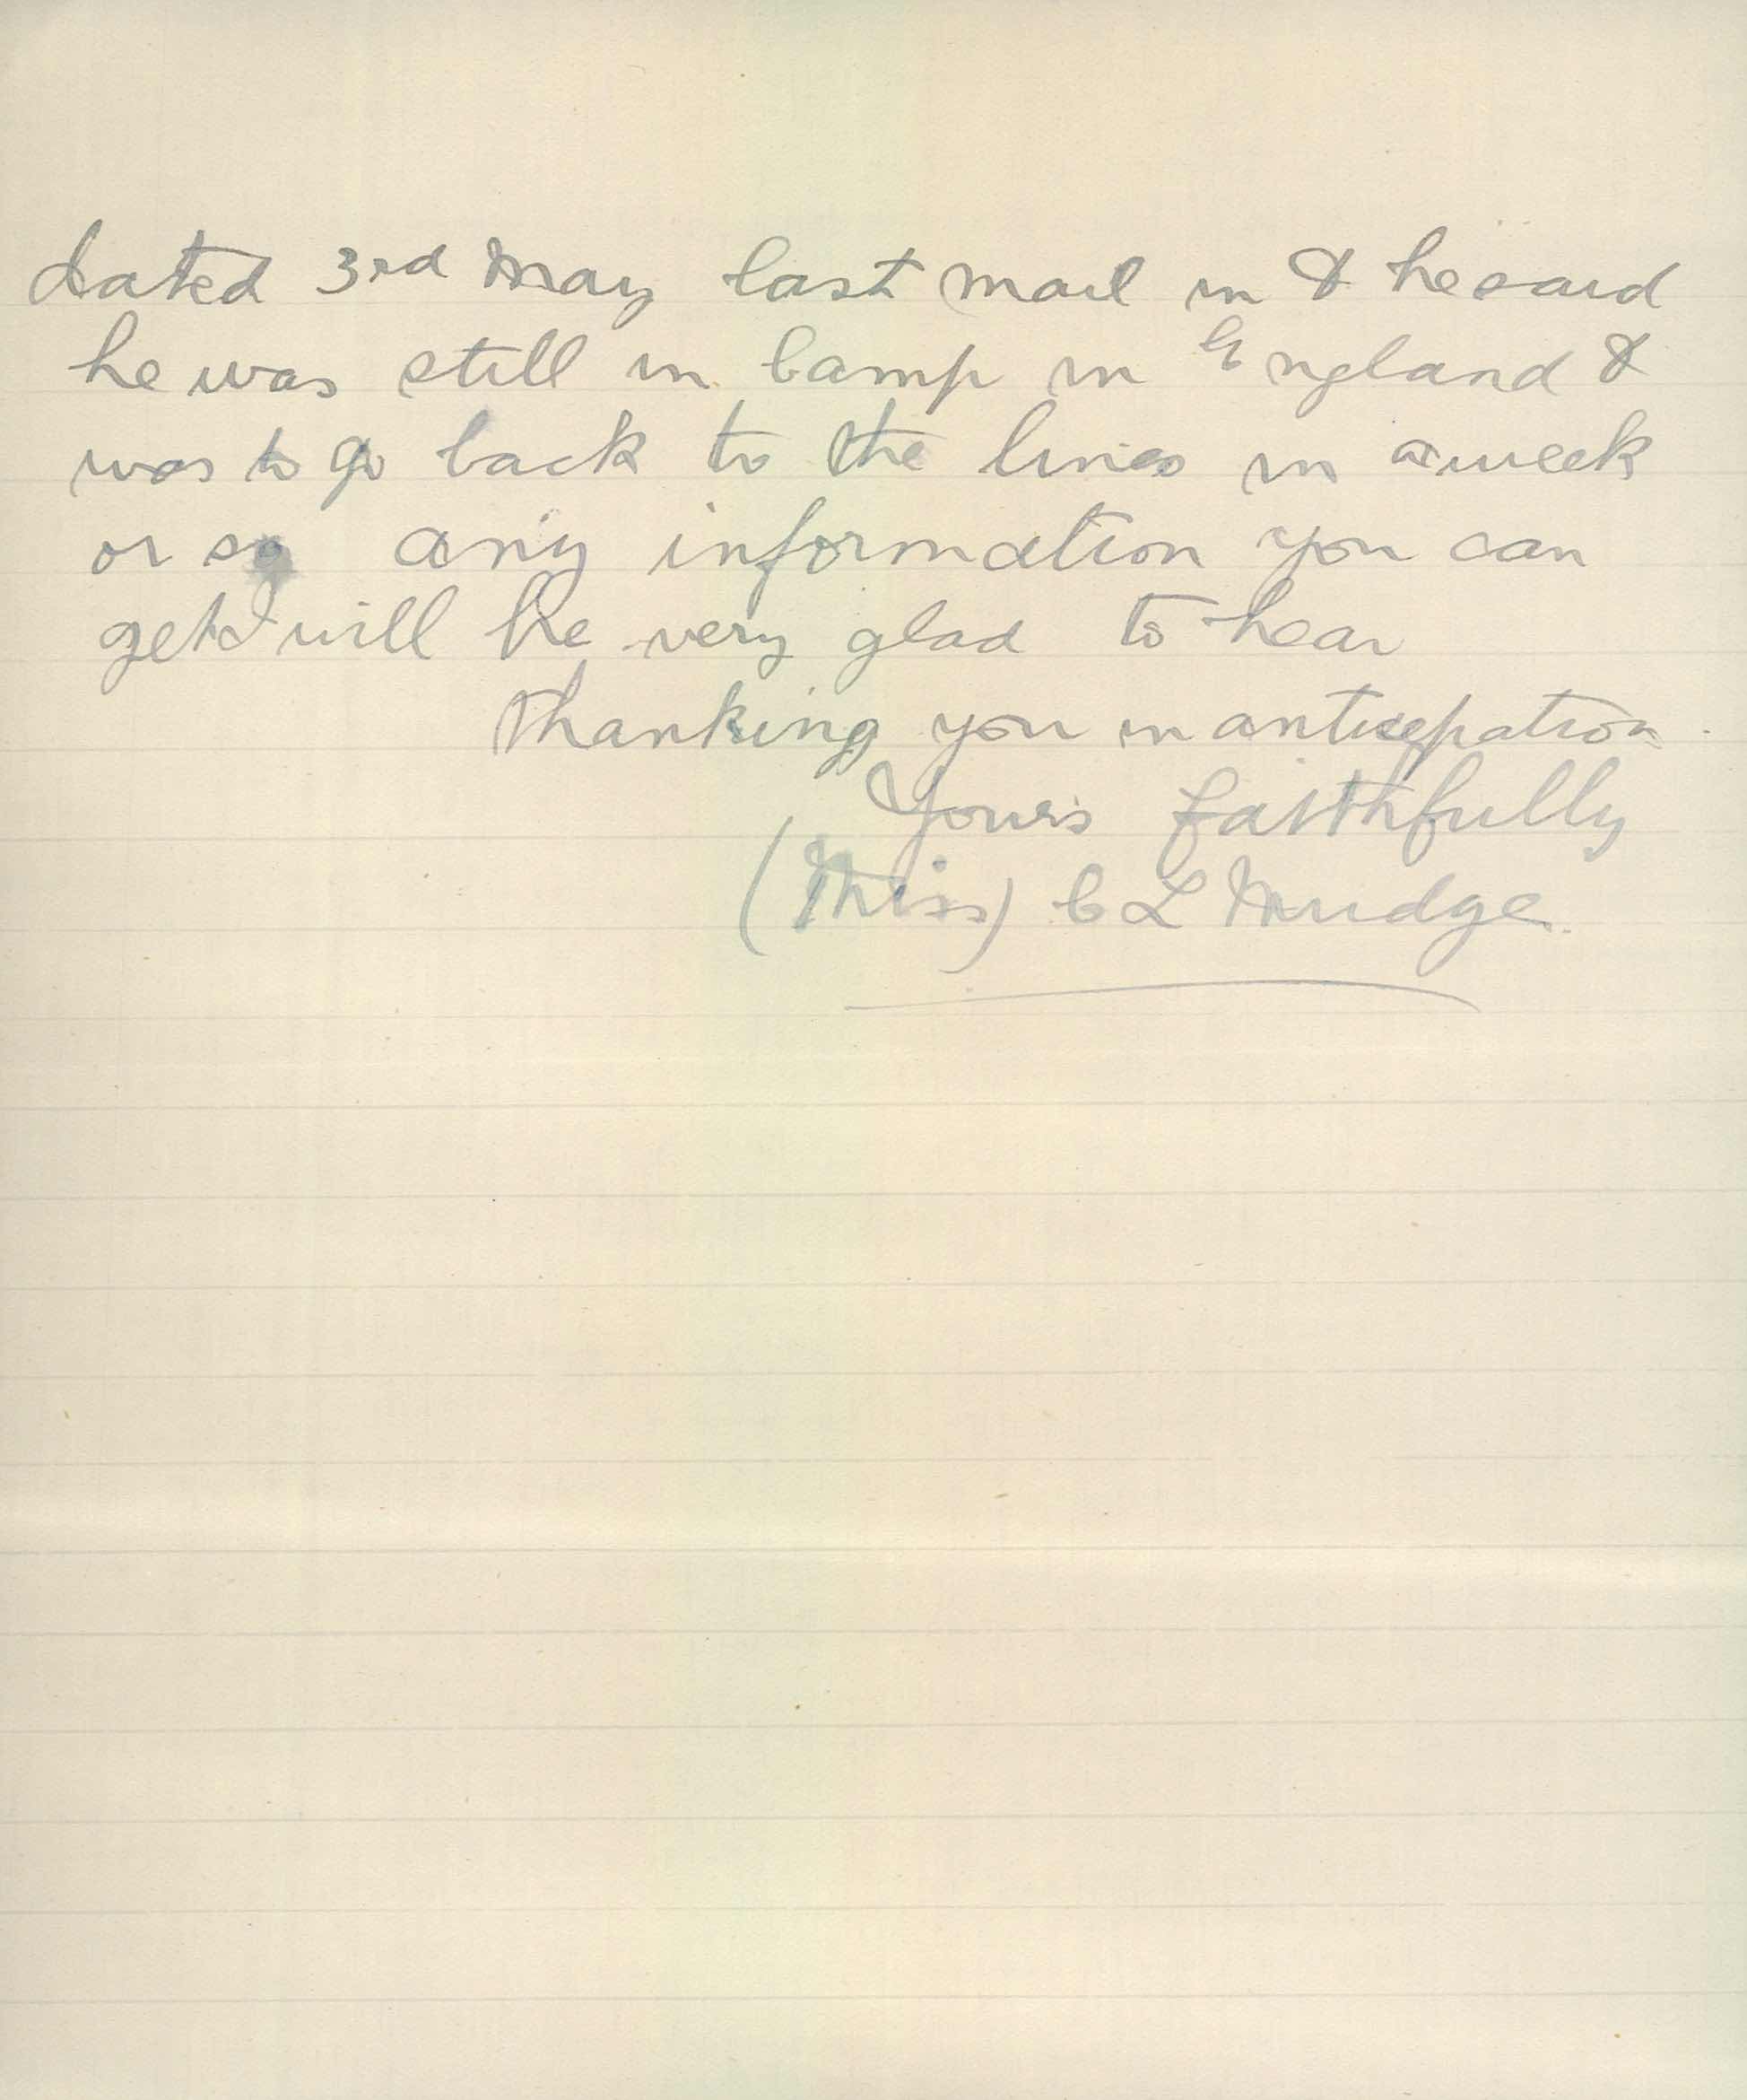 dated 3rd May last mail in & he said
he was still in Camp in England &
was to go back to the lines in a week
or so any information you can
get I will be very glad to hear
Thanking you in anticepation.
Yours faithfully
(Miss) C L Mudge.